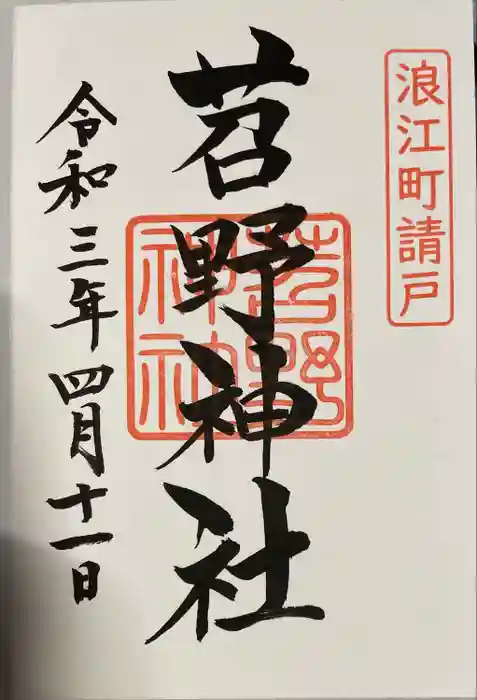 浪江町請戸
苕野神社
苕野神社
令和三年四月十一日